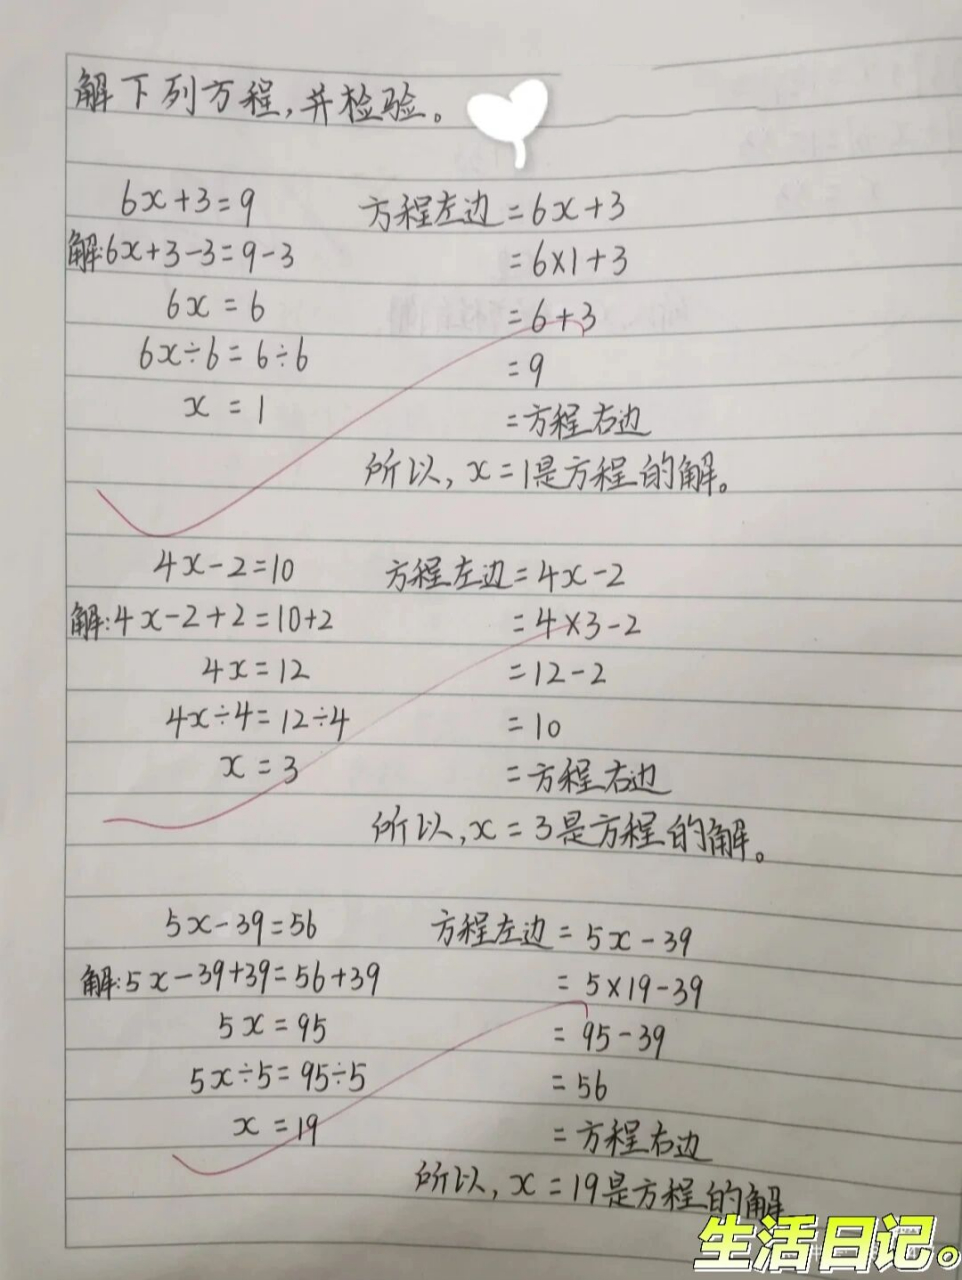 解下列方程,并检验。
6x+3=9 方程左边=6x+3
解:6x+3-3=9-3 =6×1+3
6x=6 =6+3
6x÷6=6÷6 =9
x=1 =方程右边
所以,x=1是方程的解。
4x-2=10 方程左边=4x-2
解:4x-2+2=10+2 =4×3-2
4x=12 =12-2
4x÷4=12÷4 =10
x=3 =方程右边
所以,x=3是方程的解。
5x-39=56 方程左边=5x-39
解:5x-39+39=56+39 =5×19-39
5x=95 =95-39
5x÷5=95÷5 =56
x=19 =方程右边
所以,x=19是方程的解
生活日记。